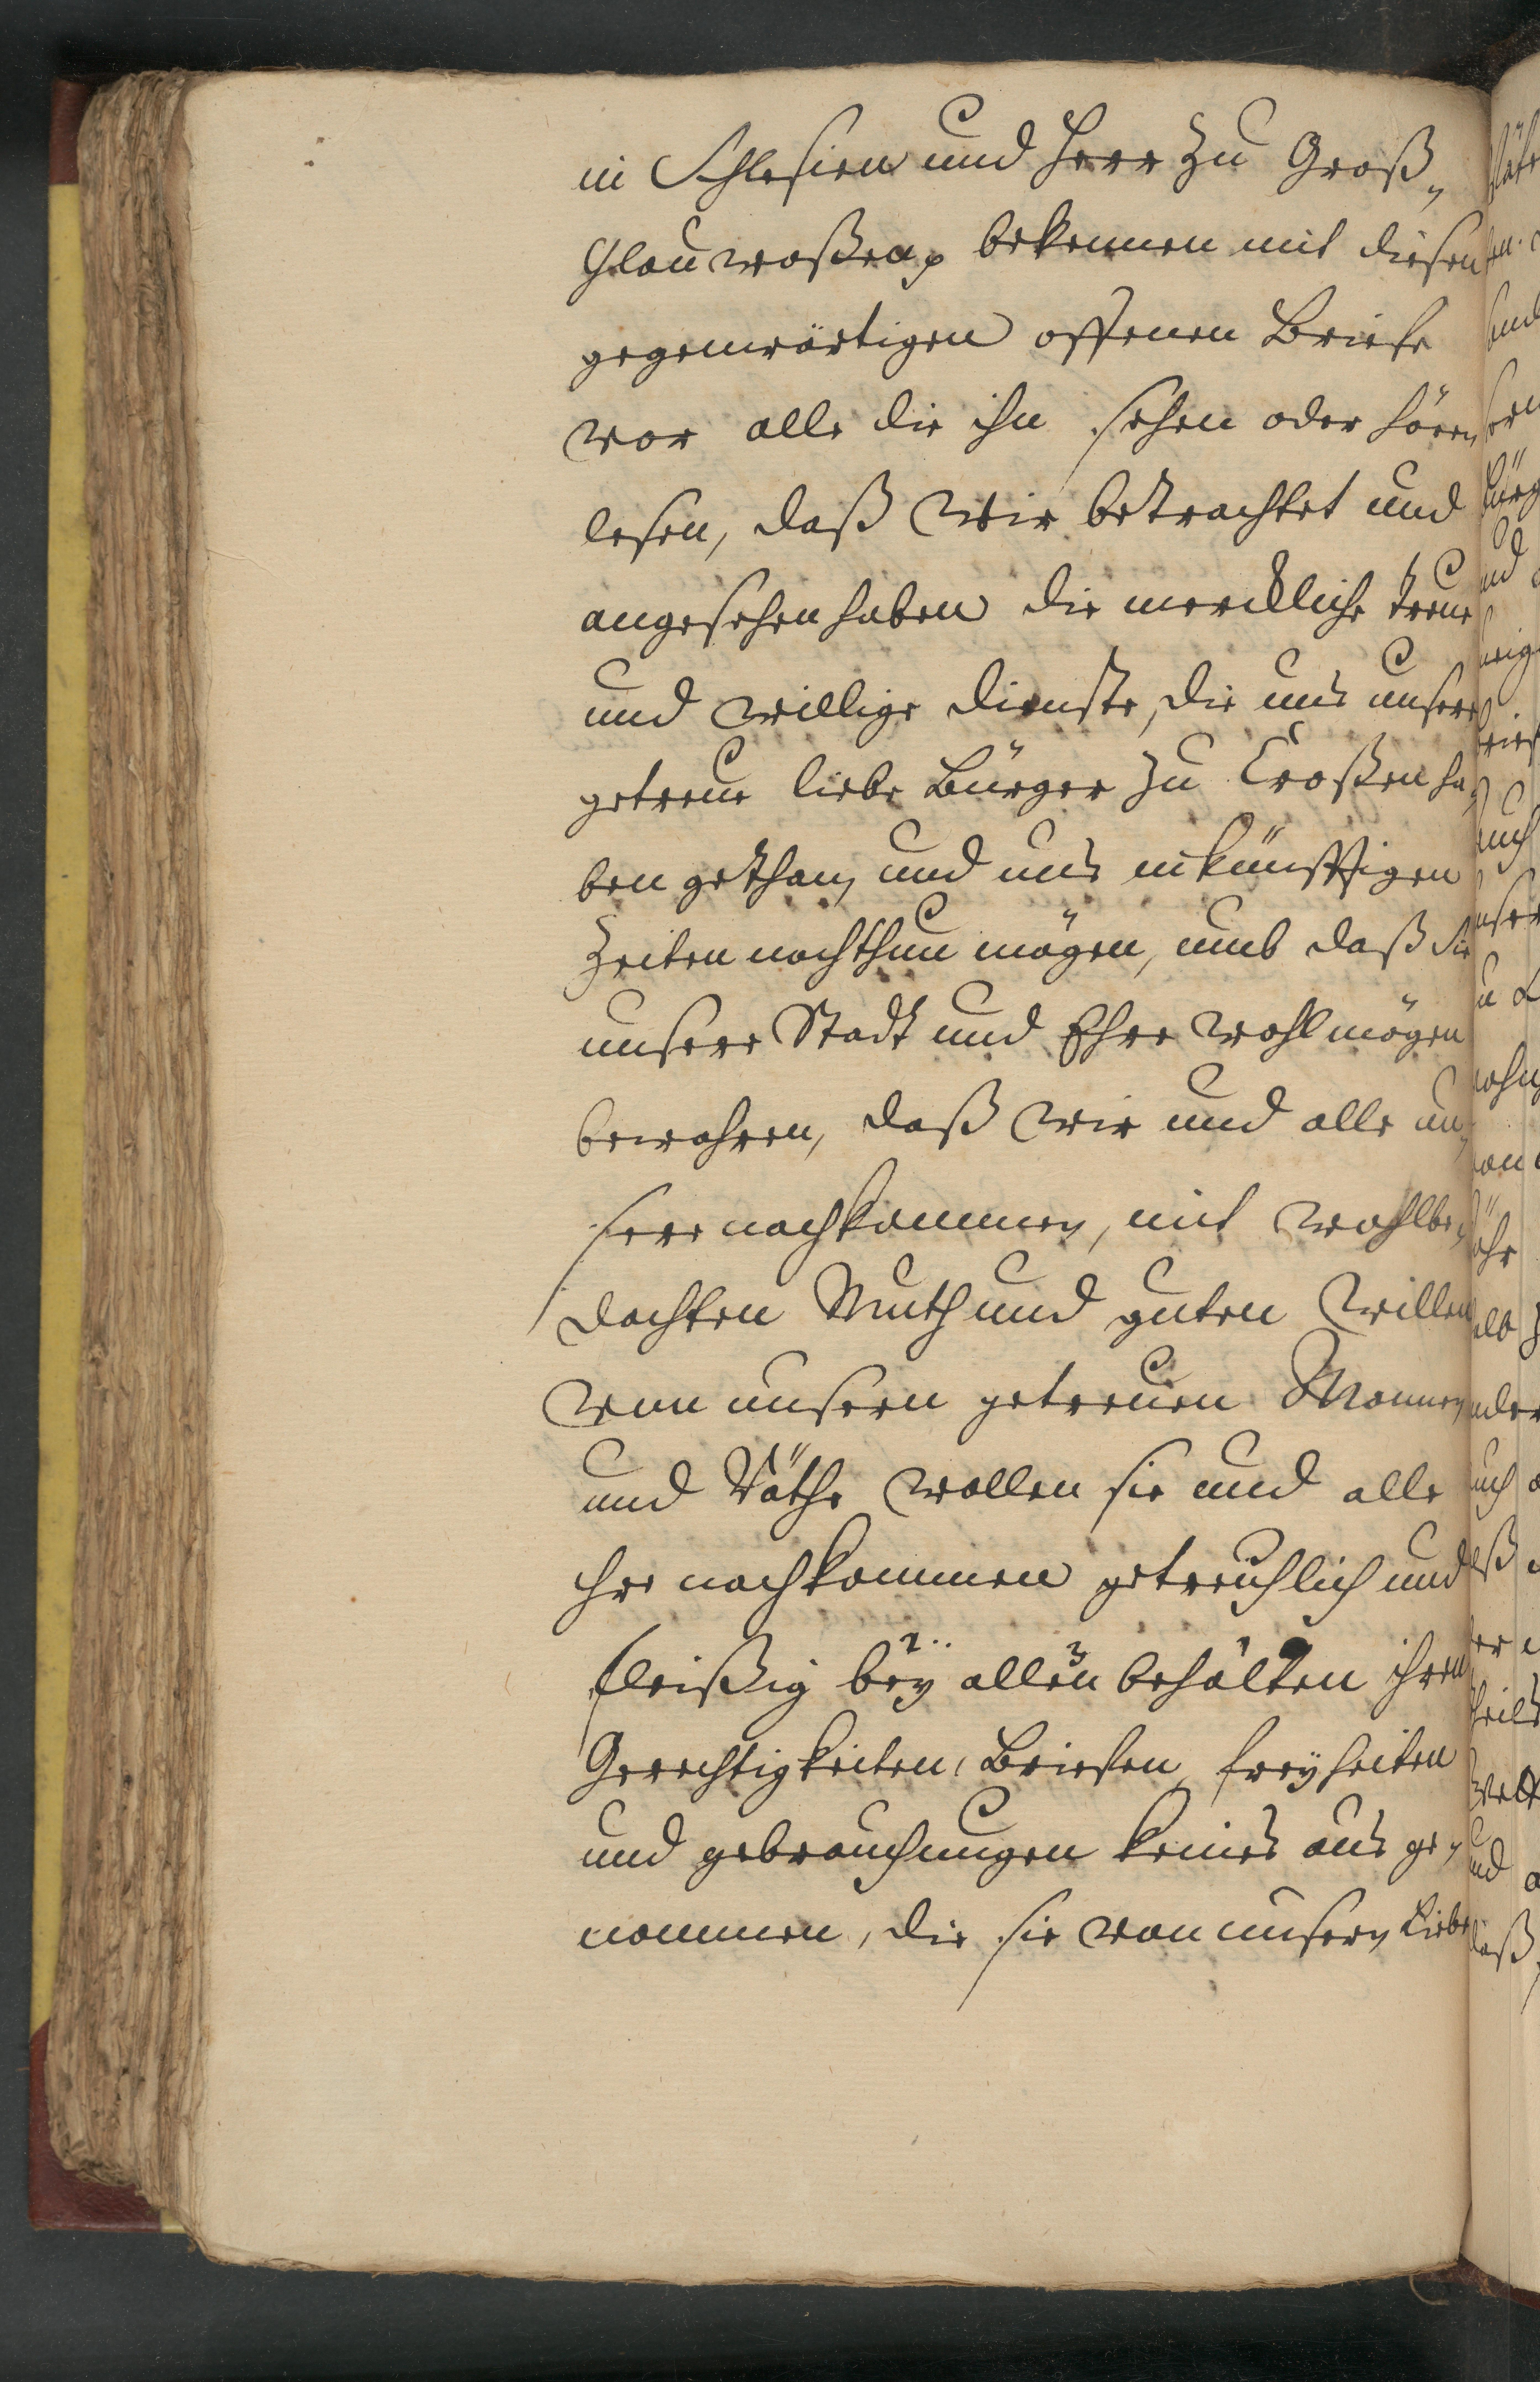 in Schlesien und Herr zu Groß„
Glauwaßen p bekennen mit diesen
gegenwärtigen offenen Briefe
vor alle die ihn sehen oder hören
lesen, daß wir betrachtet und
angesehen haben die merckliche treue
und willige dienste, die uns unsere
getreue liebe Bürger zu Croßen ha„
ben gethan, und uns in künfftigen
Zeiten noch thun mögen, umb daß sie
unsere Stadt und Ehre wohl mögen
bewahren, daß wir und alle un„
sere nachkommen, mit wohlbe„
dachten Muth und guten willen
von unsern getreuen Mannen
und Räthe wollen sie und alle
ihre nachkommen getreulich und
fleißig bey allen behalten ihren
Gerechtigkeiten, Briefen, freyheiten
und gebrauchungen keines aus ge„
nommen, die sie von unsern Liebe